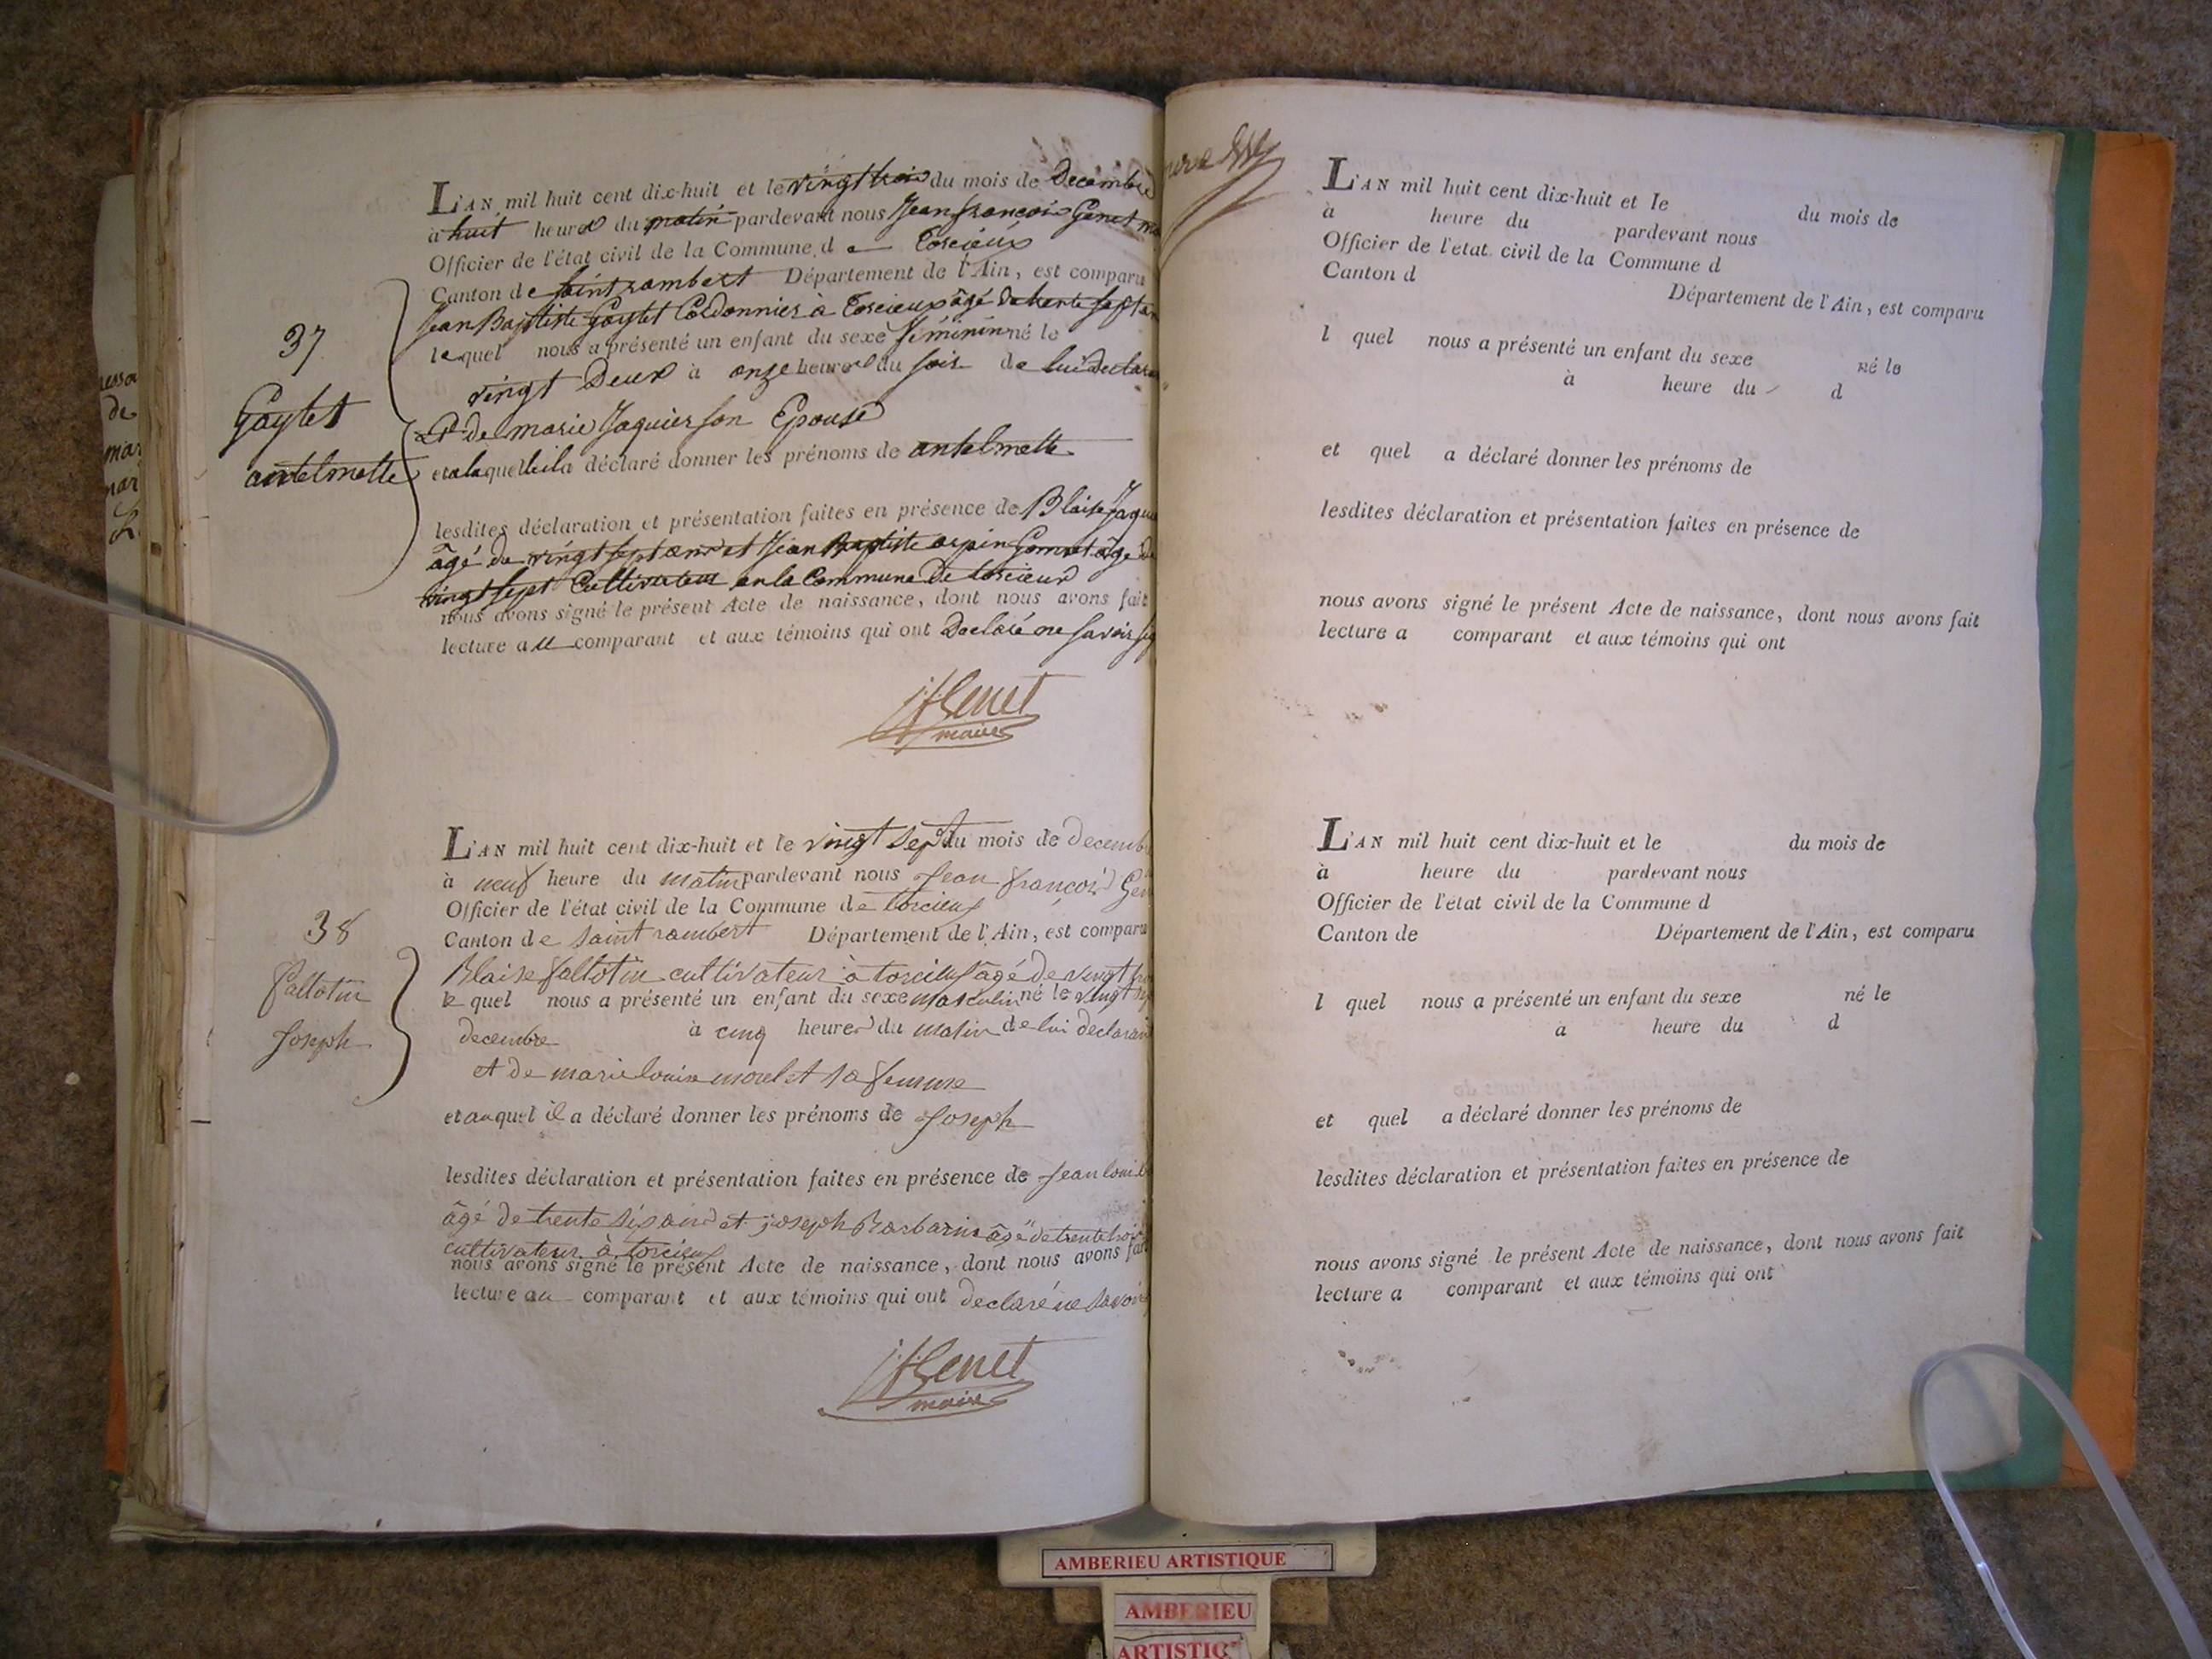 L'AN mil huit cent dix-huit et le vingt trois du mois de Decembre
à huit heures du matin pardevant nous Jean françois Genet
Officier de l'état civil de la Commune de Torcieux
Canton de saint rambert Département de l'Ain, est comparu
Jean Baptiste Gaytet Cordonnier à Torcieux âgé de trente sept
lequel nous a présenté un enfant du sexe féminin né le
vingt Deux à onze heures du soir de lui
Et de marie Jaquier son Epouse
et a laquelle il a déclaré donner les prénoms de antelmette
lesdites déclaration et présentation faites en présence de Blaise
âgé de vingt sept ans et Jean Baptiste âgé de
vingt sept Cultivateurs en la Commune De torcieux
nous avons signé le présent Acte de naissance, dont nous avons fait
lecture au comparant et aux témoins qui ont Declaré ne savoir
37
Gaytet
antelmette
JfGenet
maire
L'AN mil huit cent dix-huit et le vingt sept du mois de decembre
à neuf heure du matin pardevant nous Jean françois
Officier de l'état civil de la Commune de torcieux
Canton de saint rambert Département de l'Ain, est comparu
Blaise fallotin cultivateur à torcieux âgé de vingt
le quel nous a présenté un enfant du sexe masculin né le vingt
decembre à cinq heures du matin de lui declarant
et de marie louise morelet sa femme
et auquel il a déclaré donner les prénoms de Joseph
lesdites déclaration et présentation faites en présence de Jean louis
âgé de trente six ans et joseph Barbarin âgé de trente
cultivateur à torcieux
nous avons signé le présent Acte de naissance, dont nous avons fait
lecture au comparant et aux témoins qui ont declaré ne savoir
38
fallotin
Joseph
JfGenet
maire
L'AN mil huit cent dix-huit et le du mois de
à heure du pardevant nous
Officier de l'état civil de la Commune d
Canton d Département de l'Ain, est comparu
l quel nous a présenté un enfant du sexe né le
à heure du d
et quel a déclaré donner les prénoms de
lesdites déclaration et présentation faites en présence de
nous avons signé le présent Acte de naissance, dont nous avons fait
lecture a comparant et aux témoins qui ont
L'AN mil huit cent dix-huit et le du mois de
à heure du pardevant nous
Officier de l'état civil de la Commune d
Canton de Département de l'Ain, est comparu
l quel nous a présenté un enfant du sexe né le
à heure du d
et quel a déclaré donner les prénoms de
lesdites déclaration et présentation faites en présence de
nous avons signé le présent Acte de naissance, dont nous avons fait
lecture a comparant et aux témoins qui ont
AMBERIEU ARTISTIQUE
AMBERIEU
ARTISTIQ